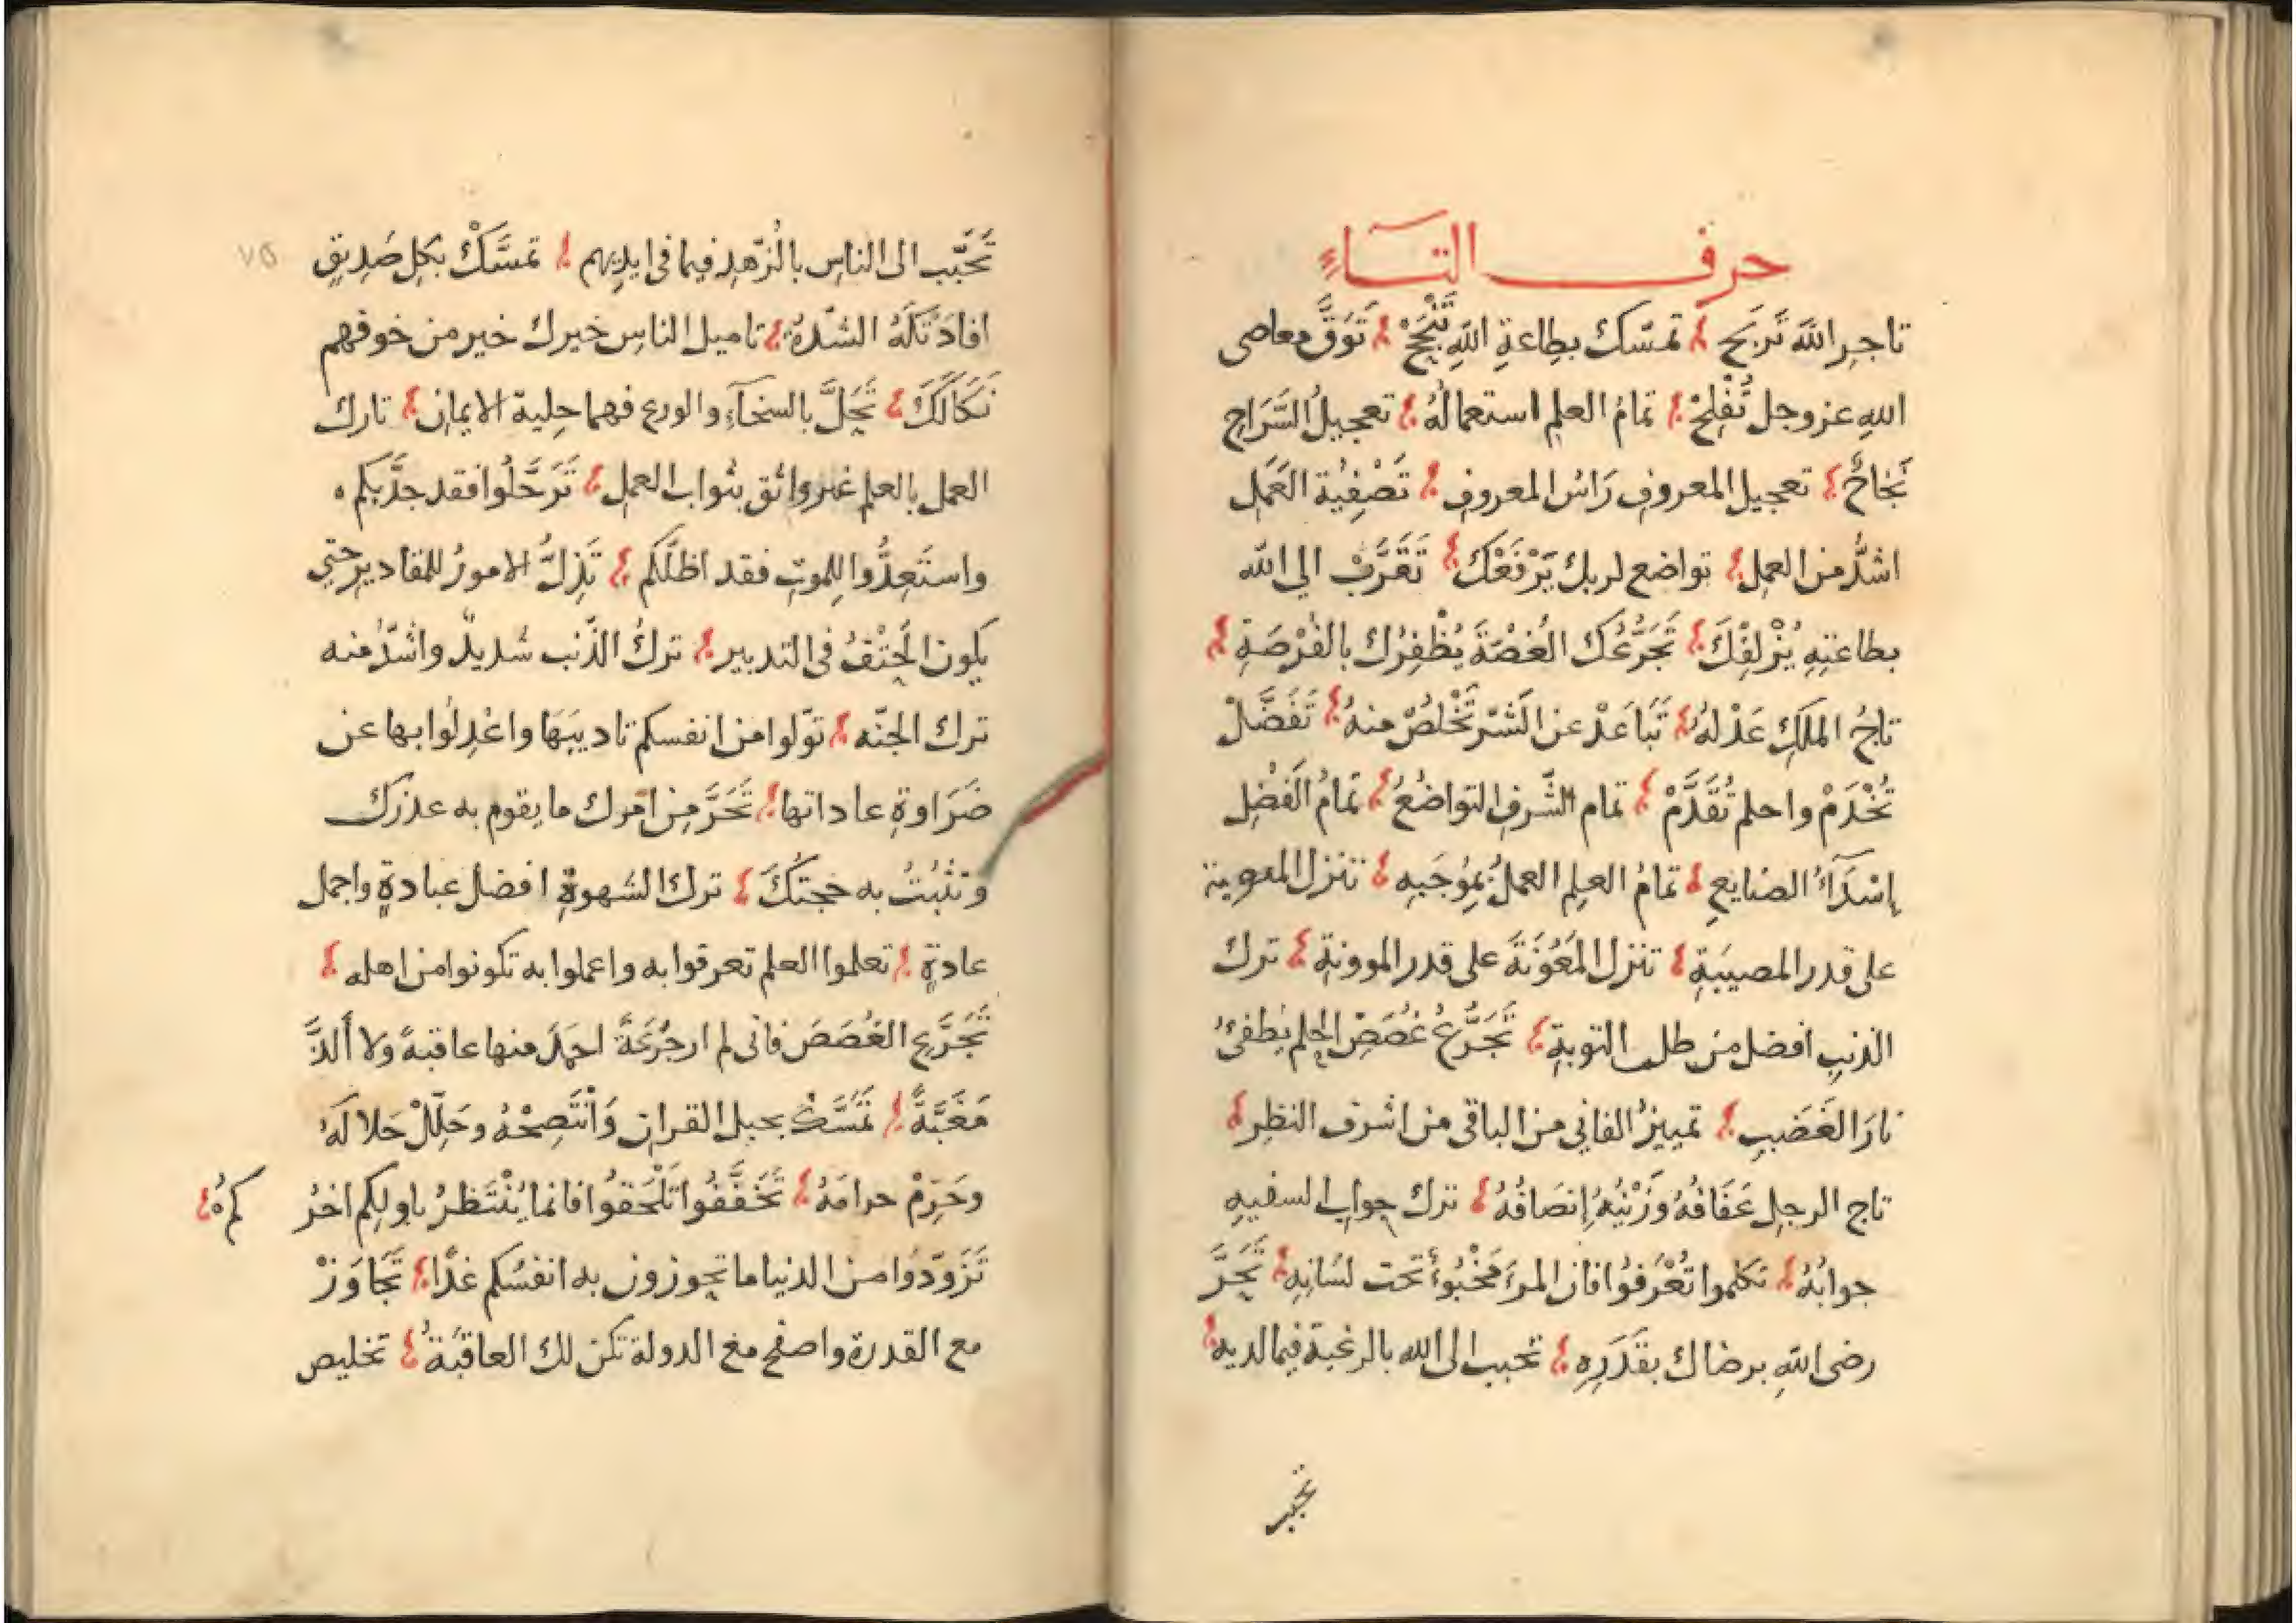 حرف التاء
تاجِرِ اللهَ تَربَح تمسّك بطاعةِ اللهِ تَنْجَحْ تَوَقَّ معاصى
اللهِ عز وجل تُفْلِحْ تمامُ العلمِ استعمالُهُ تعجيلُ السَّرَاحِ
نَجَاحٌ تعجيل المعروفِ رَاسُ المعروفِ تَصْفِيَة العَمَلِ
اشدُّ من العملِ تواضع لربك يَرْفَعْكَ تَقَرَّبْ الى الله
بطاعتِهِ يُزْلِفْكَ تَجَرُّعُكَ الغُصَّةَ يُظْفِرُك بالفُرْصَةِ
تاجُ الملكِ عَدْلهُ تَبَاعَدْ عن الشَّرِّ تَخْلُصْ منهُ تَفَضَّلْ
تُخْدَمْ واحلم تُقَدَّمْ تمام الشَّرفِ التواضعُ تمَامُ الفَضْلِ
إسْدَاءُ الصنايعِ تمامُ العلم العملُ بمُوجَبِهِ تنزل المعوبة
على قدر المصيبَةِ تنزل المَعُوْنَةَ على قدر الموونةِ ترك
الذنبِ افضل من طلب التوبةِ تَجَرُّعُ غُصَصِ الحِلمِ يُطفئُ
نارَ الغَضَبِ تمييزُ الفانى من الباقى من اشرف النظرِ
تاج الرجلِ عَفَافُهُ وَزَيْنُهُ إنصَافُهُ ترك جواب السفيهِ
جوابُهُ تكلموا تُعْرَفوُا فان المرءَ مَخْبُوءٌ تحت لسَانِهِ تَحَرَّ
رضى اللهِ برضاك بقَدَرِهِ تحبب الى الله بالرغبة فيما لديه
تحبب
تَحَبّب الى الناسِ بالزهدِ فيما فى ايديهم تمسَّكْ بكلِ صَدِيقٍ
افادَتْكَهُ الشّدةُ تاميل الناسِ خيرك خير من خوفهم
نَكَالَكَ تَحَلَّ بالسخآءِ والورع فهما حِلية الايمانِ تارك
العمل بالعلمِ غير واثق بثواب العملِ تَرَحَّلُوا فقد جدَّ بكم
واستَعِدُّوا للموتِ فقد اظلّكم تَذِلُّ الامورُ للمقادير حتى
يكون الحَتْفُ فى التدبير تركُ الذّنب شديدٌ واشدُّ منه
ترك الجنّه تولّوا من انفسكم تاديبَهَا واعْدِلُوا بها عن
ضَرَاوةِ عاداتها تَحَرَّ مِن امرك ما يقوم به عذرك
وتثبُتُ به حجتكَ ترك الشهوةِ افضل عبادةٍ واجمل
عادةٍ تعلموا العلم تعرفوا به واعملوا به تكونوا من اهله
تَجَرَّعِ الغُصَصَ فانى لم ار جُرْعَةً احمَدَ منها عاقبةً ولا ألذَّ
مَغَبَّةً تَمَسَّكْ بحبل القرانِ وَانْتَصِحْهُ وحَلِّلْ حَلالَهُ
وحَرِّمْ حرامَهُ تَخَفَّفُوا تَلْحَقوُا فانما يُنْتَظرُ باولِكم اخرُكم
تَزَوّدوُا من الدنيا ما تحوزون به انفسكم غدًا تَجَاوَزْ
مع القدرة واصفح مع الدولة تكن لك العاقبَةُ تخليص